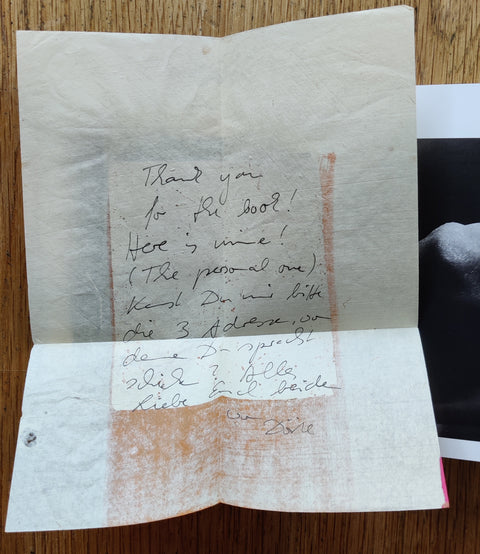 Thank you
for the book!
Here is mine!
(The personal one)
Kannst Du mir bitte
die 3 Adressen, von
denen Du sprachst
schicken? Alles
Liebe Euch beiden
von